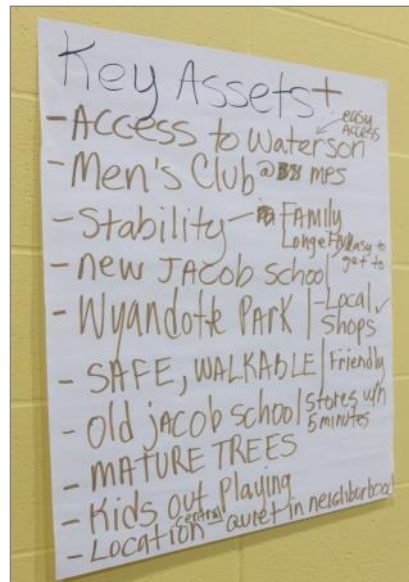 Key Assets +
- Access to Waterson
easy Access
- Men's Club @ mps
- Stability - FAMILY
Longe
easy to get to
- new JACOB school
- Wyandotte PARK
- Local Shops
- SAFE, WALKABLE
Friendly
- Old jacob school
Stores w/n 5 minutes
- MATURE TREES
- Kids out Playing
- Location central - quiet in neighborhood